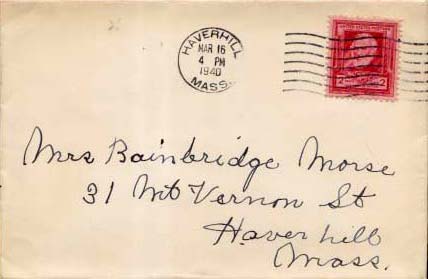 HAVERHILL
MAR 16
4 PM
1940
MASS.
2 2
Mrs Bainbridge Morse
31 Mt Vernon St
Haverhill
Mass.